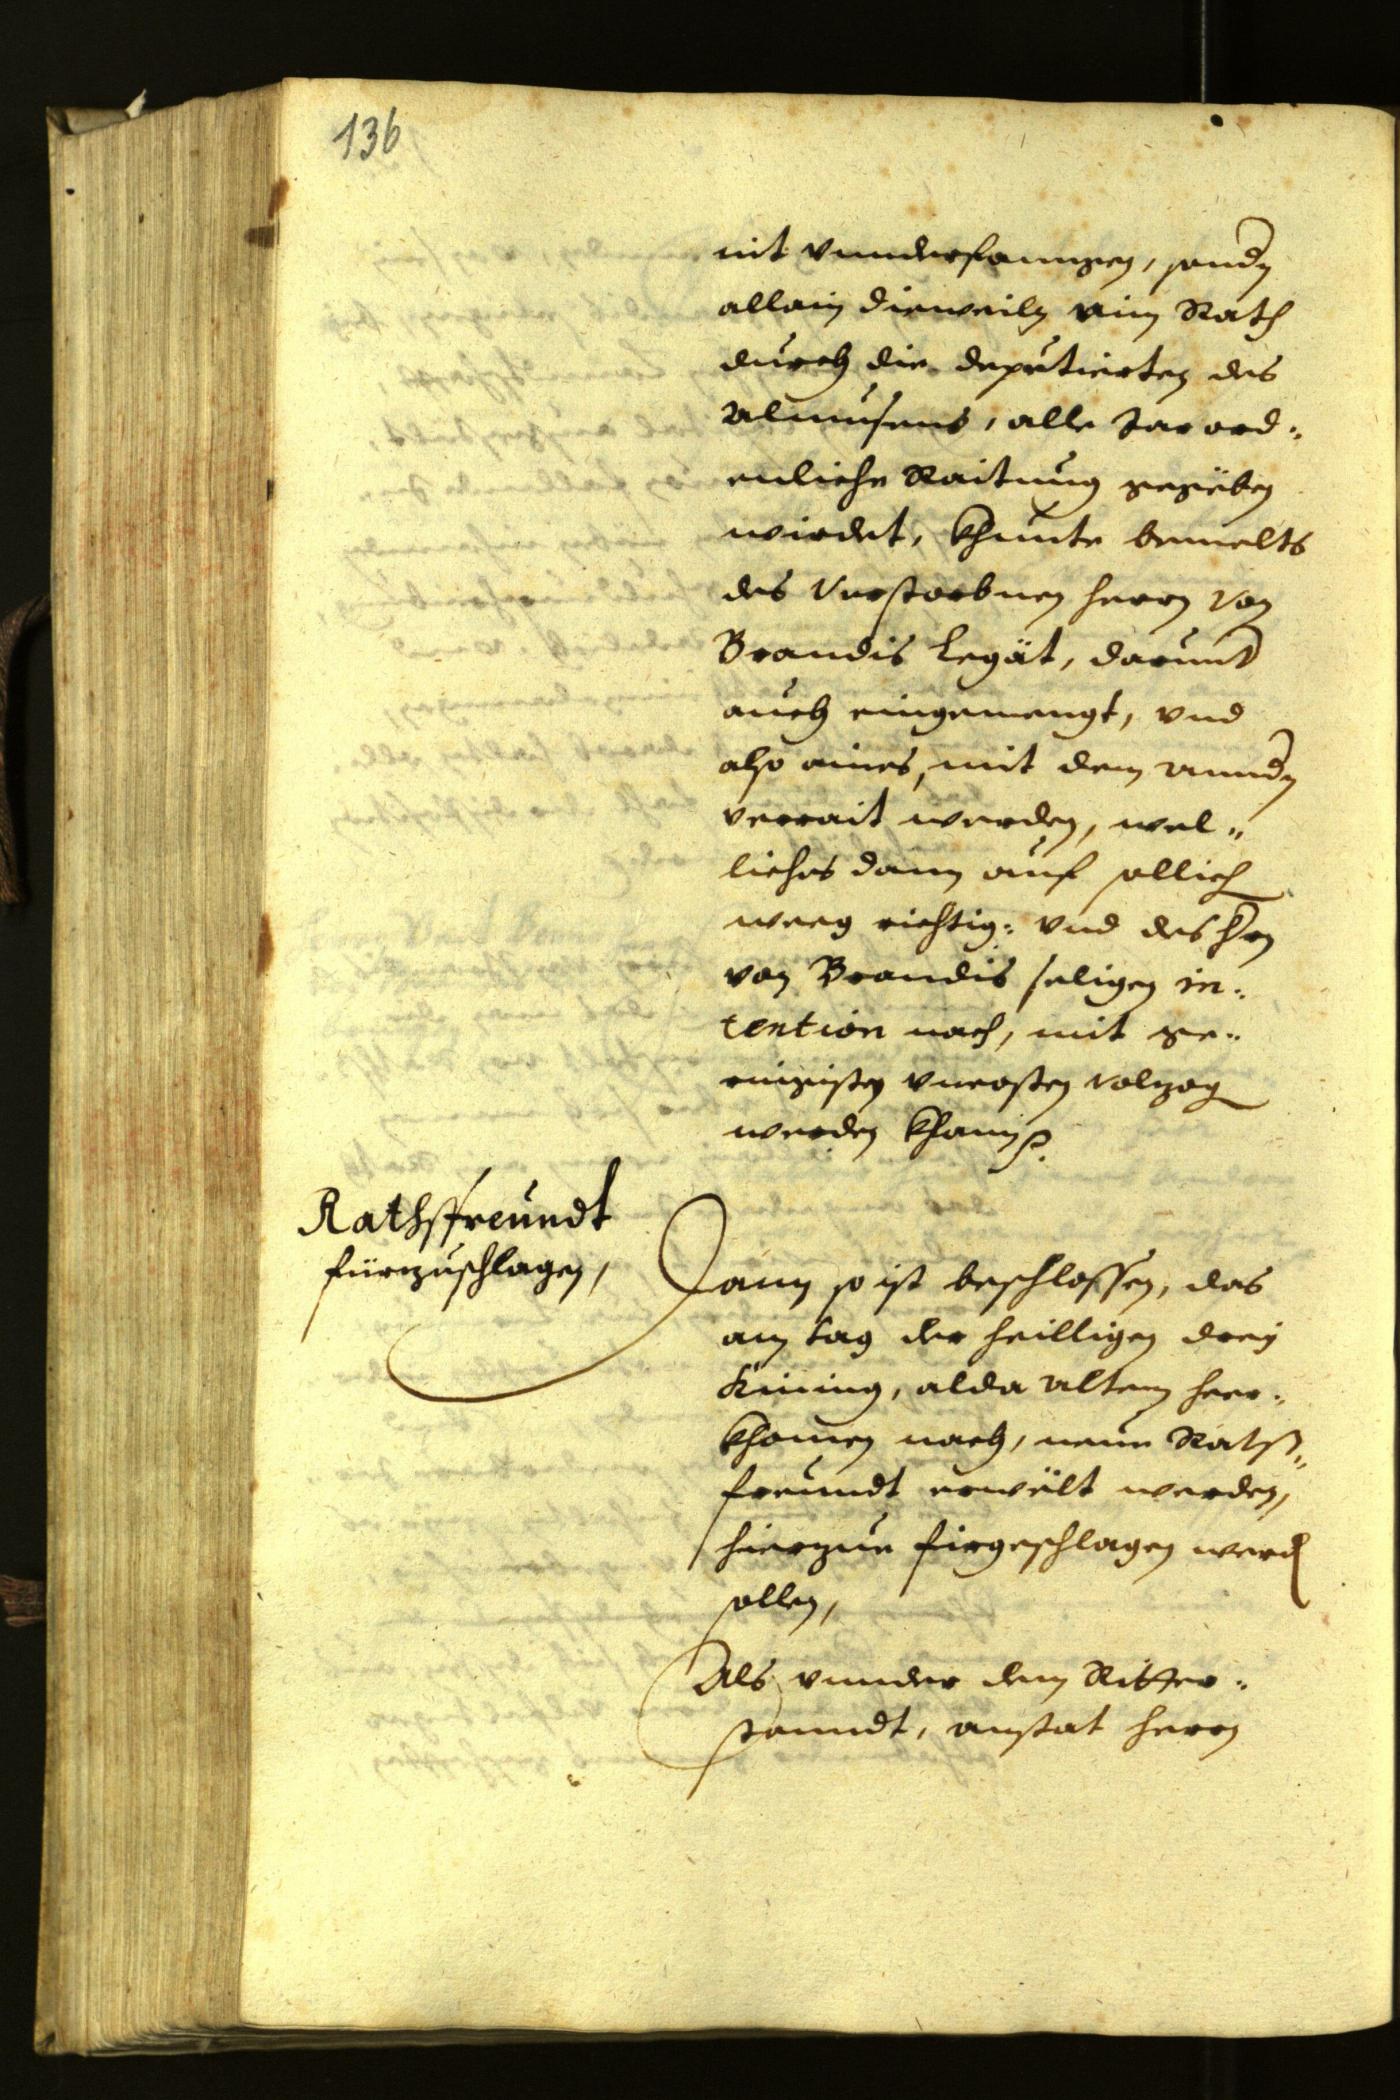 136
nit vnnderfanngen, sonndn
allain dieweiln aim Rath
durch die deputierten des
Almusens, alle Jar ord:
enliche Raitung gegëben
wirdet, khunte bemelts
des verstorbnen herrn von
Brandis Legät, darunt
auch eingemengt, vnd
also aines, mit dem anndn
verrait werden, wel„
liches dann auf sollich
weeg richtig: vnd des hrn
von Brandis seligen in:
tention nach, mit ge„
ringisten vncosten volzog
werden khann.
Rathsfreundt
fürzuschlagen,
Dann so ist beschlossen, das
am tag der heilligen drey
Küning, alda altem heer:
khomen nach, neue Rats„
freundt erwëlt werden,
hierzue firgeschlagen werd
sollen,
Als vnnder dem Ritter:
standt, anstat herrn